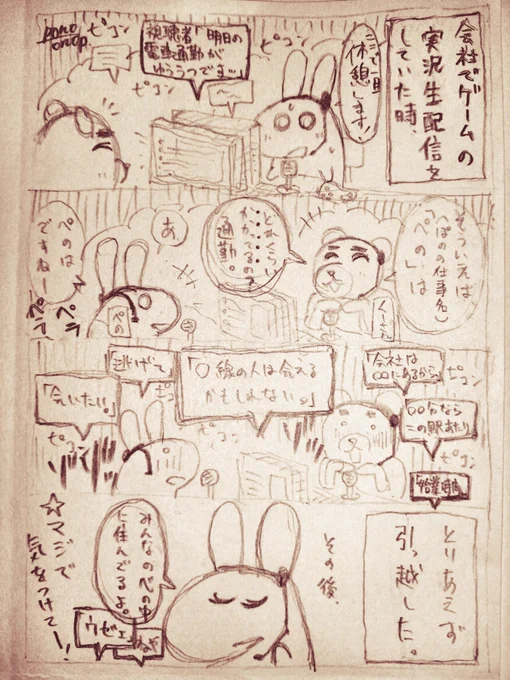 会社でゲームの
実況生配信を
していた時、
ここで一旦
休憩します。
ピコン
視聴者「明日の
電車通勤が
ゆううつです…」
ピコン
ピコン
そういえば
(ぽのの仕事名)
「ぺの」は
くーさん
どれくらい
かかってるの?
通勤。
あ
ぺの
ぺのは
ですねー
ペラ
ペラ
「会社は
〇〇にあるから」
ピコン
〇〇分なら
この駅あたり
ピコン
「始業時間」
「〇線の人は会える
かもしれない。」
ピコン
逃げて
ピコン
「会いたい。」
ピコン
とりあえず
引っ越した。
その後、
みんなの心の中
に住んでるよ。
ウゼェ
☆マジで
気をつけてー!